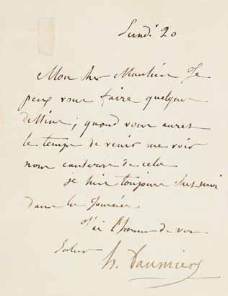 Lundi 20
Mon cher Monsieur Je
peux vous faire quelques
dessins; quand vous aurez
le temps de venir me voir
nous causerons de cela
je suis toujours chez moi
dans la journée
J'ai l'honneur de vous
saluer
h. Daumier